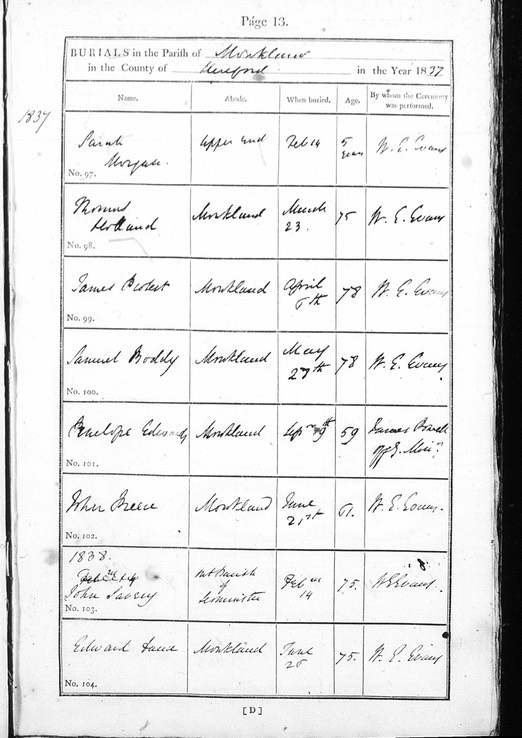 Page 13.
BURIALS in the Parish of Monkland
in the County of Hereford in the Year 1837
Name. Abode. When buried. Age. By whom the Ceremony was performed.
1837
Sarah Morgan. Upper End Feb 14 5 years W. E. Evans
No. 97.
Thomas Holland Monkland March 23. 75 W. E. Evans
No. 98.
James Monkland April 6th 78 W. E. Evans
No. 99.
Samuel Boddy Monkland May 28th 78 W. E. Evans
No. 100.
Penelope Edwards Monkland Sept 59 James
No. 101.
John Preece Monkland June 21st 61. W. E. Evans.
No. 102.
1838.
John Savery Parish of Leominster Feb 14 75. W E Evans.
No. 103.
Edward Monkland June 75. W. E. Evans
No. 104.
[ D ]